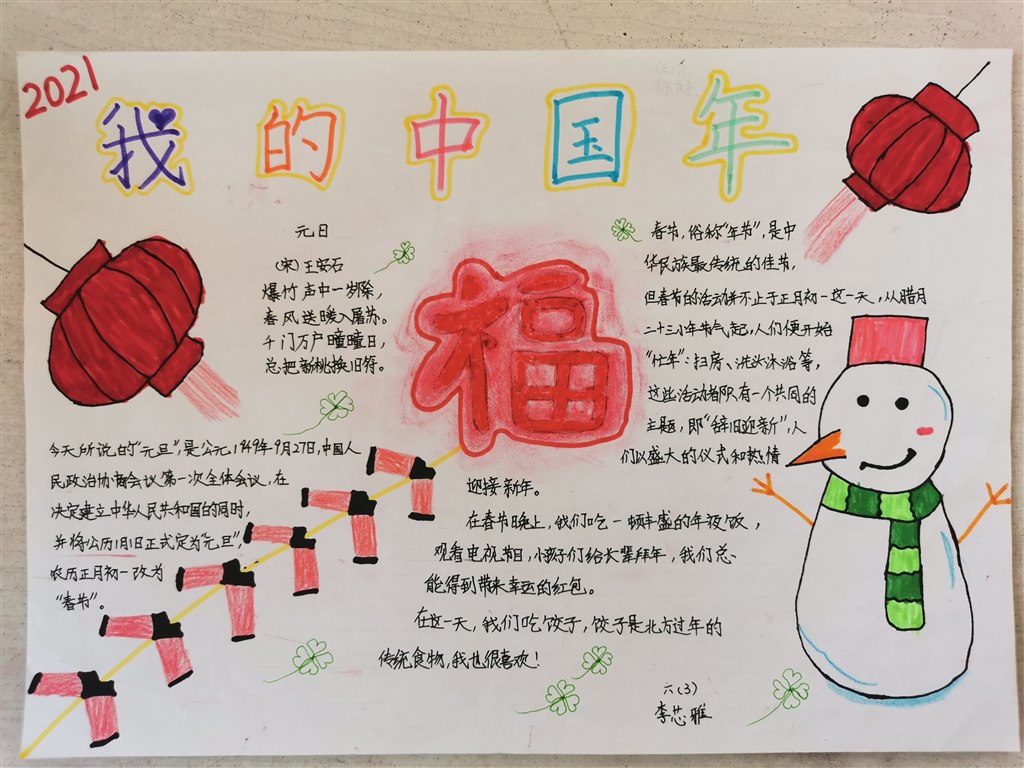 2021
我的中国年
元日
(宋)王安石
爆竹声中一岁除,
春风送暖入屠苏。
千门万户曈曈日,
总把新桃换旧符。
今天所说的"元旦",是公元1949年9月27日,中国人
民政治协商会议第一次全体会议,在
决定建立中华人民共和国的同时,
并将公历1月1日正式定为"元旦",
农历正月初一改为
"春节"。
福
春节,俗称"年节",是中
华民族最传统的佳节,
但春节的活动并不止于正月初一这一天,从腊月
二十三小年节气起,人们便开始
"忙年":扫房、洗头沐浴等,
这些活动都有一个共同的
主题,即"辞旧迎新",人
们以盛大的仪式和热情
迎接新年。
在春节晚上,我们吃一顿丰盛的年夜饭,
观看电视节目,小孩子们给长辈拜年,我们总
能得到带来幸运的红包。
在这一天,我们吃饺子,饺子是北方过年的
传统食物,我也很喜欢!
六(3)
李芯雅